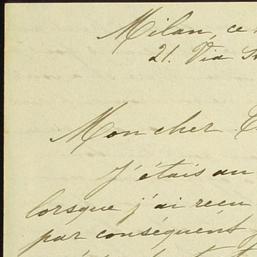 Milan, ce
21. Via
Mon cher
J'étais au
lorsque j'ai reçu
par conséquent